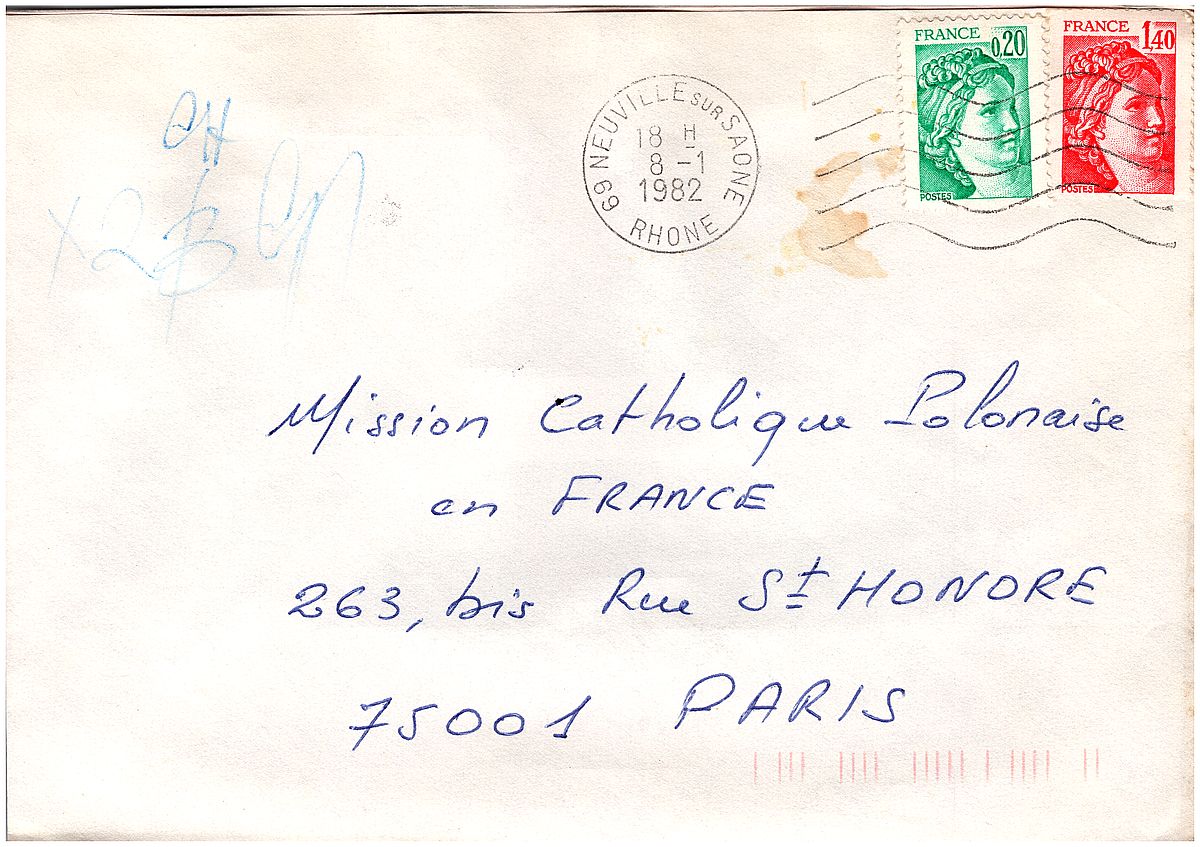 FRANCE 0,20
POSTES
FRANCE 1,40
POSTES
69 NEUVILLE SUR SAONE
18 H
8 -1
1982
RHONE
Mission Catholique Polonaise
en FRANCE
263, bis Rue St HONORE
75001 PARIS